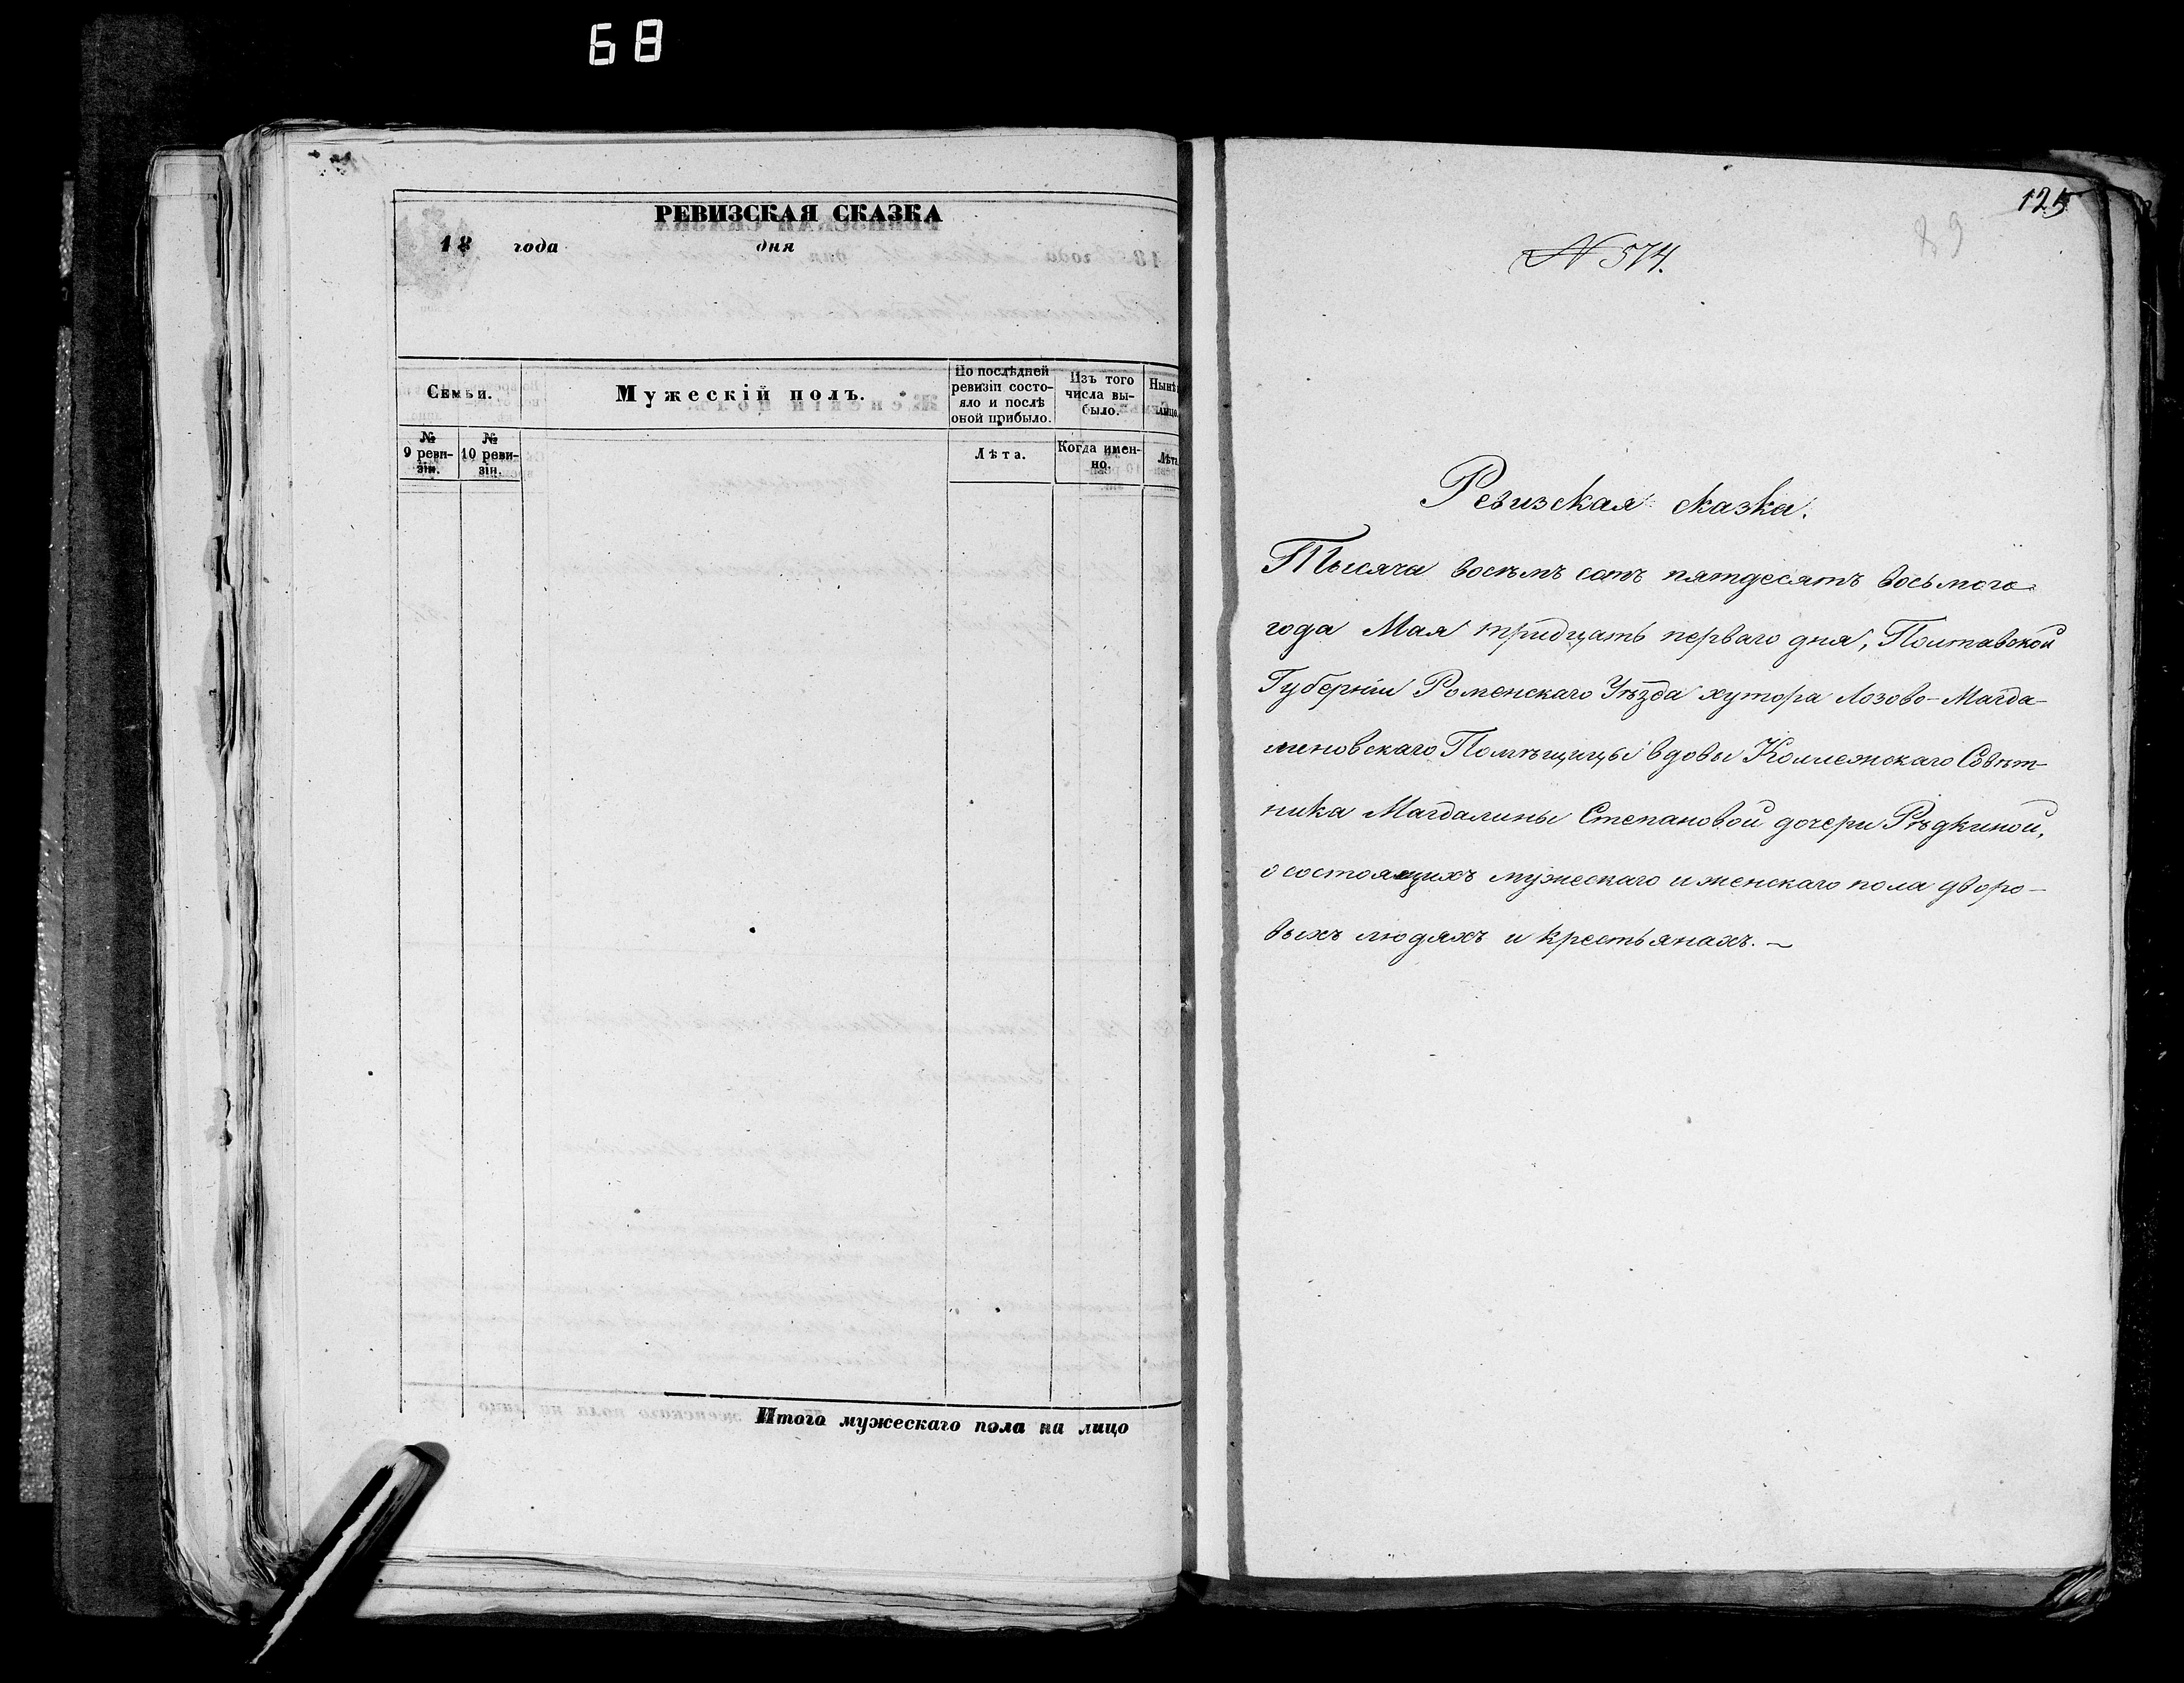 68
РЕВИЗСКАЯ СКАЗКА
18 года дня
Семьи.
Мужескій полъ.
По послѣдней ревизіи состо-
яло и послѣ оной прибыло.
Изъ того числа вы-
было.
№ 9 реви-
зіи.
№ 10 реви-
зіи.
Лѣта.
Когда имен-
но.
Лѣта
Итого мужескаго пола на лицо
125
89
№ 574.
Ревизская сказка.
Тысяча восѣмъ сотъ пятдесятъ восьмого
года Мая тридцать перваго дня, Полтавской
Губерніи Роменскаго Уѣзда хутора Лозово-Магда-
линовскаго Помѣщицы вдовы Коллежскаго Совѣт-
ника Магдалины Степановой дочери Рѣдкиной,
о состоящихъ мужескаго и женскаго пола дворо-
выхъ людяхъ и крестьянахъ.